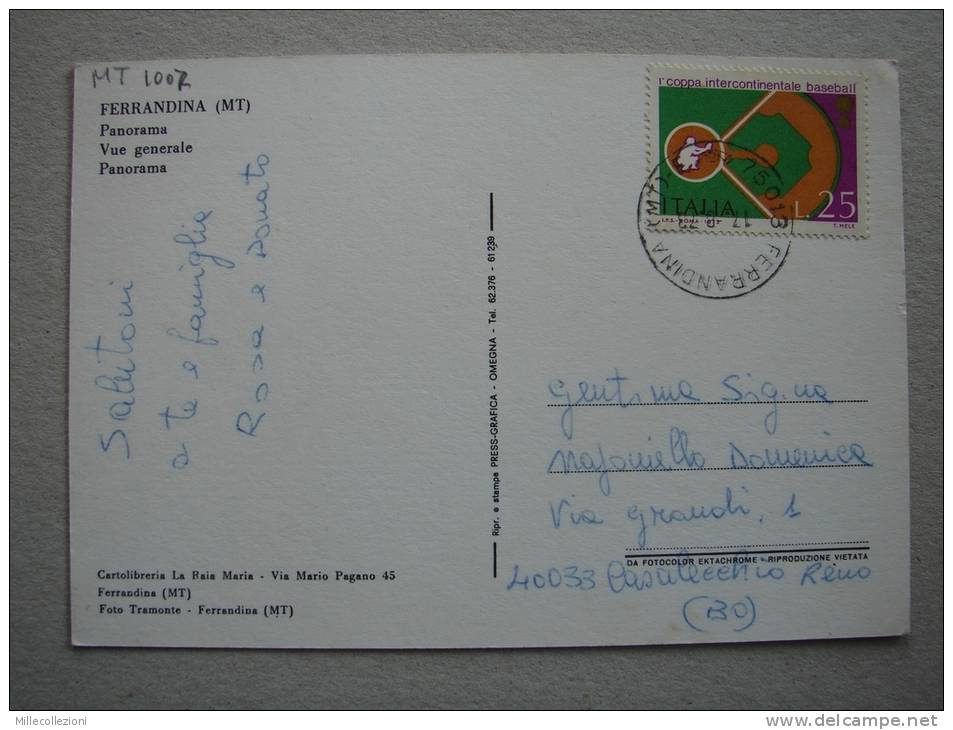 MT 1007
FERRANDINA (MT)
Panorama
Vue generale
Panorama
Salutoni
a te e famiglia
Rosa e Donato
Cartolibreria La Raia Maria - Via Mario Pagano 45
Ferrandina (MT)
Foto Tramonte - Ferrandina (MT)
Ripr. e stampa PRESS-GRAFICA - OMEGNA - Tel. 62.376 - 61239
1ª coppa intercontinentale baseball
ITALIA L.25
I.P.S. - ROMA - 1973 T. MELE
75013 FERRANDINA (MT)
Gent.ma Sig.na
Majoniello Domenica
Via Grandi, 1
DA FOTOCOLOR EKTACHROME - RIPRODUZIONE VIETATA
40033 Casalecchio Reno
(BO)
Millecollezioni
www.delcampe.net